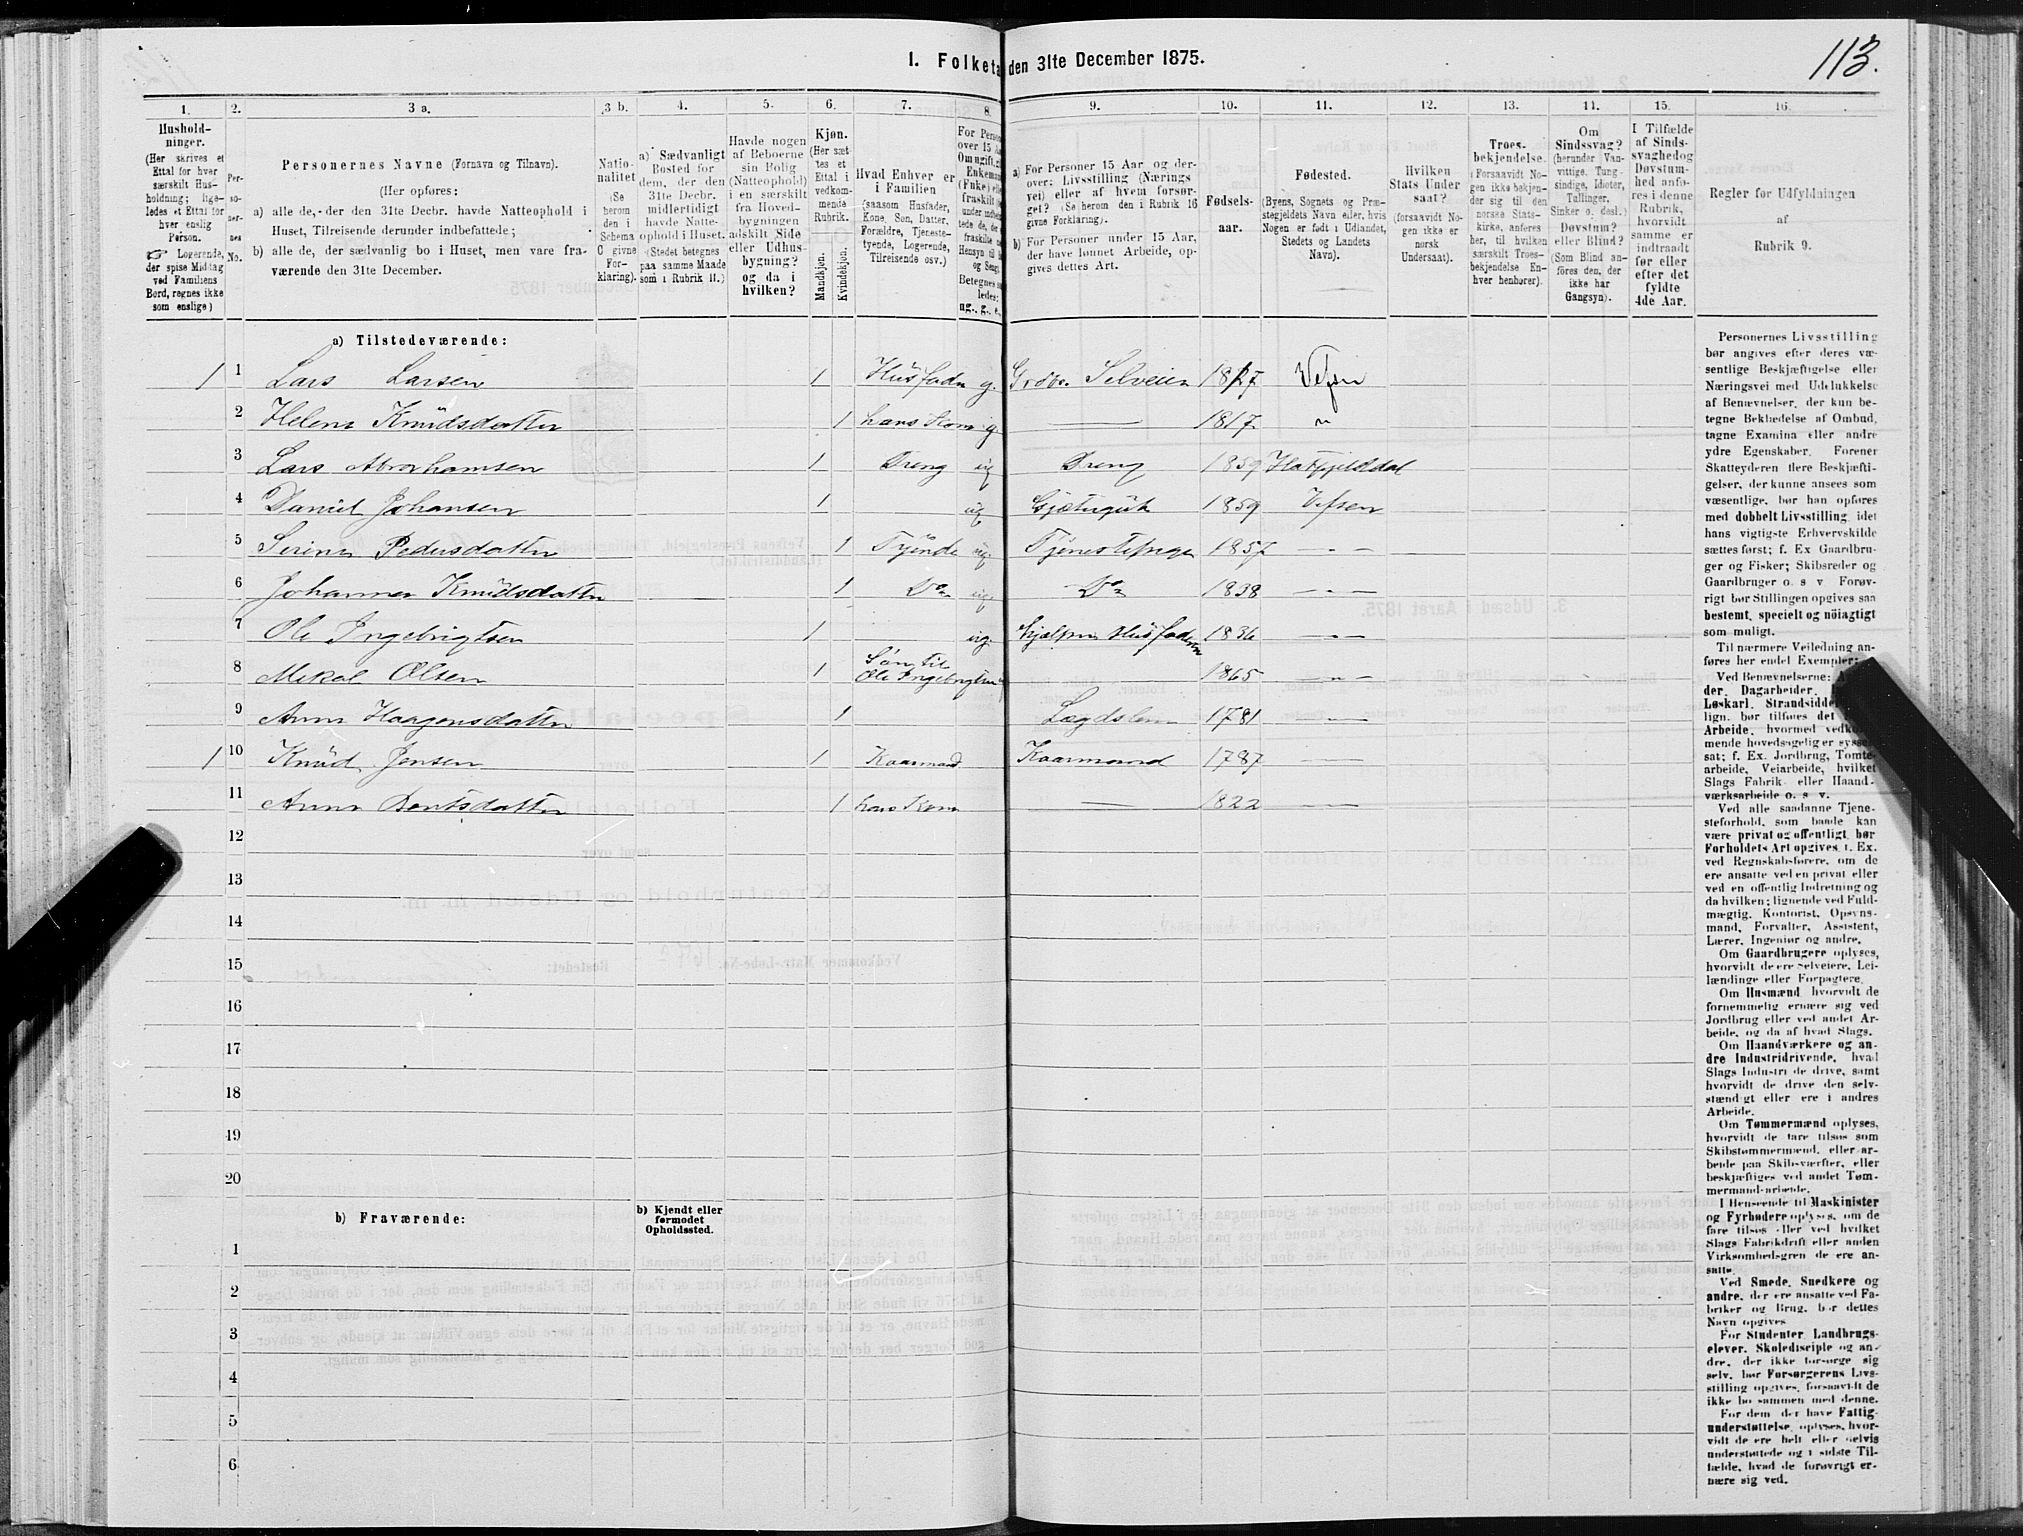 113.
1. Folketa den 31te December 1875.
1. 2. 3 a. 3 b. 4. 5. 6. 7. 8. 9. 10. 11. 12. 13. 14. 15. 16.
Hushold-
ninger.
(Her skrives et
Ettal for hver
særskilt Hus-
holdning; lige-
ledes et Ettal for
hver enslig
Person.
Logerende,
der spise Middag
ved Familiens
Bord, regnes ikke
som enslige)
Per-
so-
ner-
nes
No.
Personernes Navne (Fornavn og Tilnavn).
(Her opføres:
a) alle de, der den 31te Decbr. havde Natteophold i
Huset, Tilreisende derunder indbefattede;
b) alle de, der sædvanlig bo i Huset, men vare fra-
værende den 31te December.
Natio-
nalitet
(Se
herom
den i
Schema
C givne
For-
klaring).
a) Sædvanligt
Bosted for
dem, der den
31te Decbr.
midlertidigt
havde Natte-
ophold i Huset.
(Stedet betegnes
paa samme Maade
som i Rubrik 11.)
Havde nogen
af Beboerne
sin Bolig
(Natteophold)
i en særskilt
fra Hoved-
bygningen
adskilt Side
eller Udhus-
bygning?
og da i
hvilken?
Kjøn.
(Her sæt-
tes et
Ettal i
vedkom-
mende
Rubrik.
Mandkjøn.
Kvindekjøn.
Hvad Enhver er
i Familien
(saasom Husfader,
Kone, Søn, Datter,
Forældre, Tjeneste-
tyende, Logerende,
Tilreisende osv.)
For Person
over 15 Aa
Om ugift, gi
Enkeman
(Enke) elle
fraskilt
Betegnes sa
ledes:
ug., g., e.,
a) For Personer 15 Aar og der-
over: Livsstilling (Nærings
vei) eller af hvem forsør-
get? (Se herom den i Rubrik 16
givne Forklaring).
b) For Personer under 15 Aar,
der have lønnet Arbeide, op-
gives dettes Art.
Fødsels-
aar.
Fødested.
(Byens, Sognets og Præ-
stegjeldets Navn eller, hvis
Nogen er født i Udlandet,
Stedets og Landets
Navn).
Hvilken
Stats Under
saat?
(forsaavidt No-
gen ikke er
norsk
Undersaat).
Troes-
bekjendelse.
(Forsaavidt No-
gen ikke bekjen-
der sig til den
norske Stats-
kirke, anføres
her, til hvilken
særskilt Troes-
bekjendelse En-
hver henhører).
Om
Sindssvag?
(herunder Van-
vittige, Tung-
sindige, Idioter,
Tullinger,
Sinker o. desl.)
Døvstum?
eller Blind?
(Som Blind an-
føres den, der
ikke har
Gangsyn).
I Tilfælde
af Sinds-
svaghed og
Døvstum-
hed anfø-
res i denne
Rubrik,
hvorvidt
samme er
indtraadt
før eller
efter det
fyldte
4de Aar.
Regler for Udfyldningen
af
Rubrik 9.
a) Tilstedeværende:
1 1 Lars Larsen 1 Husfader g. Grdbr. Selveier 1827 Vefsn
2 Helena Knudsdatter 1 hans Kone g. — 1817 "
3 Lars Abrahamsen 1 Dreng ug Dreng 1859 Hatfjelddal
4 Daniel Johansen 1 ug Gjætergut 1859 Vefsen
5 Serina Pedersdatter 1 Tyende ug Tjenestepige 1857 — " —
6 Johanna Knudsdatter 1 Do ug Do 1838 — " —
7 Ole Ingebrigtsen 1 ug. hjælper Husfaderen 1836 — " —
8 Mikal Olsen 1 Søn til
Ole Ingebrigtsen 1865 — " —
9 Anna Haagensdatter 1 Lægdslem 1781 — " —
1 10 Knud Jensen 1 Kaarmand Kaarmand 1787 — " —
11 Anna Bentsdatter 1 hans Kone — 1822 — " —
12
13
14
15
16
17
18
19
20
b) Fraværende:
b) Kjendt eller
formodet
Opholdssted.
1
2
3
4
5
6
Personernes Livsstilling
bør angives efter deres væ-
sentlige Beskjæftigelse eller
Næringsvei med Udelukkelse
af Benævnelser, der kun be-
tegne Beklædelse af Ombud,
tagne Examina eller andre
ydre Egenskaber. Forener
Skatteyderen flere Beskjæfti-
gelser, der kunne ansees som
væsentlige, bør han opføres
med dobbelt Livsstilling, idet
hans vigtigste Erhvervskilde
sættes først; f. Ex Gaardbru-
ger og Fisker; Skibsreder og
Gaardbruger o. s v Forøv-
rigt bør Stillingen opgives saa
bestemt, specielt og nöiagtigt
som muligt.
Til nærmere Veiledning an-
føres her endel Exempler:
Ved Benævnelserne:
der, Dagarbeider,
Løskarl, Strandsidde
lign. bør tilføies det
Arbeide, hvormed vedko
mende hovedsagelig er syssel
sat; f. Ex. Jordbrug, Tomte-
arbeide, Veiarbeide, hvilket
Slags Fabrik eller Haand-
værksarbeide o. s. v.
Ved alle saadanne Tjene-
steforhold, som baade kan
være privat og offentligt, bør
Forholdets Art opgives, t. Ex.
ved Regnskabsførere, om de
ere ansatte ved en privat eller
ved en offentlig Indretning og
da hvilken; lignende ved Fuld-
mægtig, Kontorist, Opsyns-
mand, Forvalter, Assistent,
Lærer, Ingeniør og andre.
Om Gaardbrugere oplyses,
hvorvidt de ere Selveiere, Lei-
lændinge eller Forpagtere.
Om Husmænd hvorvidt de
fornemmelig ernære sig ved
Jordbrug eller ved andet Ar-
beide, og da af hvad Slags.
Om Haandværkere og an-
dre Industridrivende, hvad
Slags Industri de drive, samt
hvorvidt de drive den selv-
stændigt eller ere i andres
Arbeide.
Om Tømmermænd oplyses,
hvorvidt de fare tilsøs som
Skibstømmermænd, eller ar-
beide paa Skibsværfter, eller
beskjæftiges ved andet Tøm-
mermand-arbeide.
I Henseende til Maskinister
og Fyrbødere oplyses, om de
fare tilsøs eller ved hvilket
Slags Fabrikdrift eller anden
Virksomhedsgren de ere an-
satte.
Ved Smede, Snedkere og
andre, der ere ansatte ved Fa-
briker og Brug, bør dettes
Navn opgives
For Studenter, Landbrugs-
elever, Skoledisciple og an-
dre, der ikke forsørge sig
selv, bør Forsørgerens Livs-
stilling opgives, forsaavidt de
ikke bo sammen med denne.
For dem, der have Fattig-
understøttelse, oplyses, hvor-
vidt de ere helt eller delvis
understøttede og i sidste Til-
fælde, hvad de forøvrigt er-
nære sig ved.